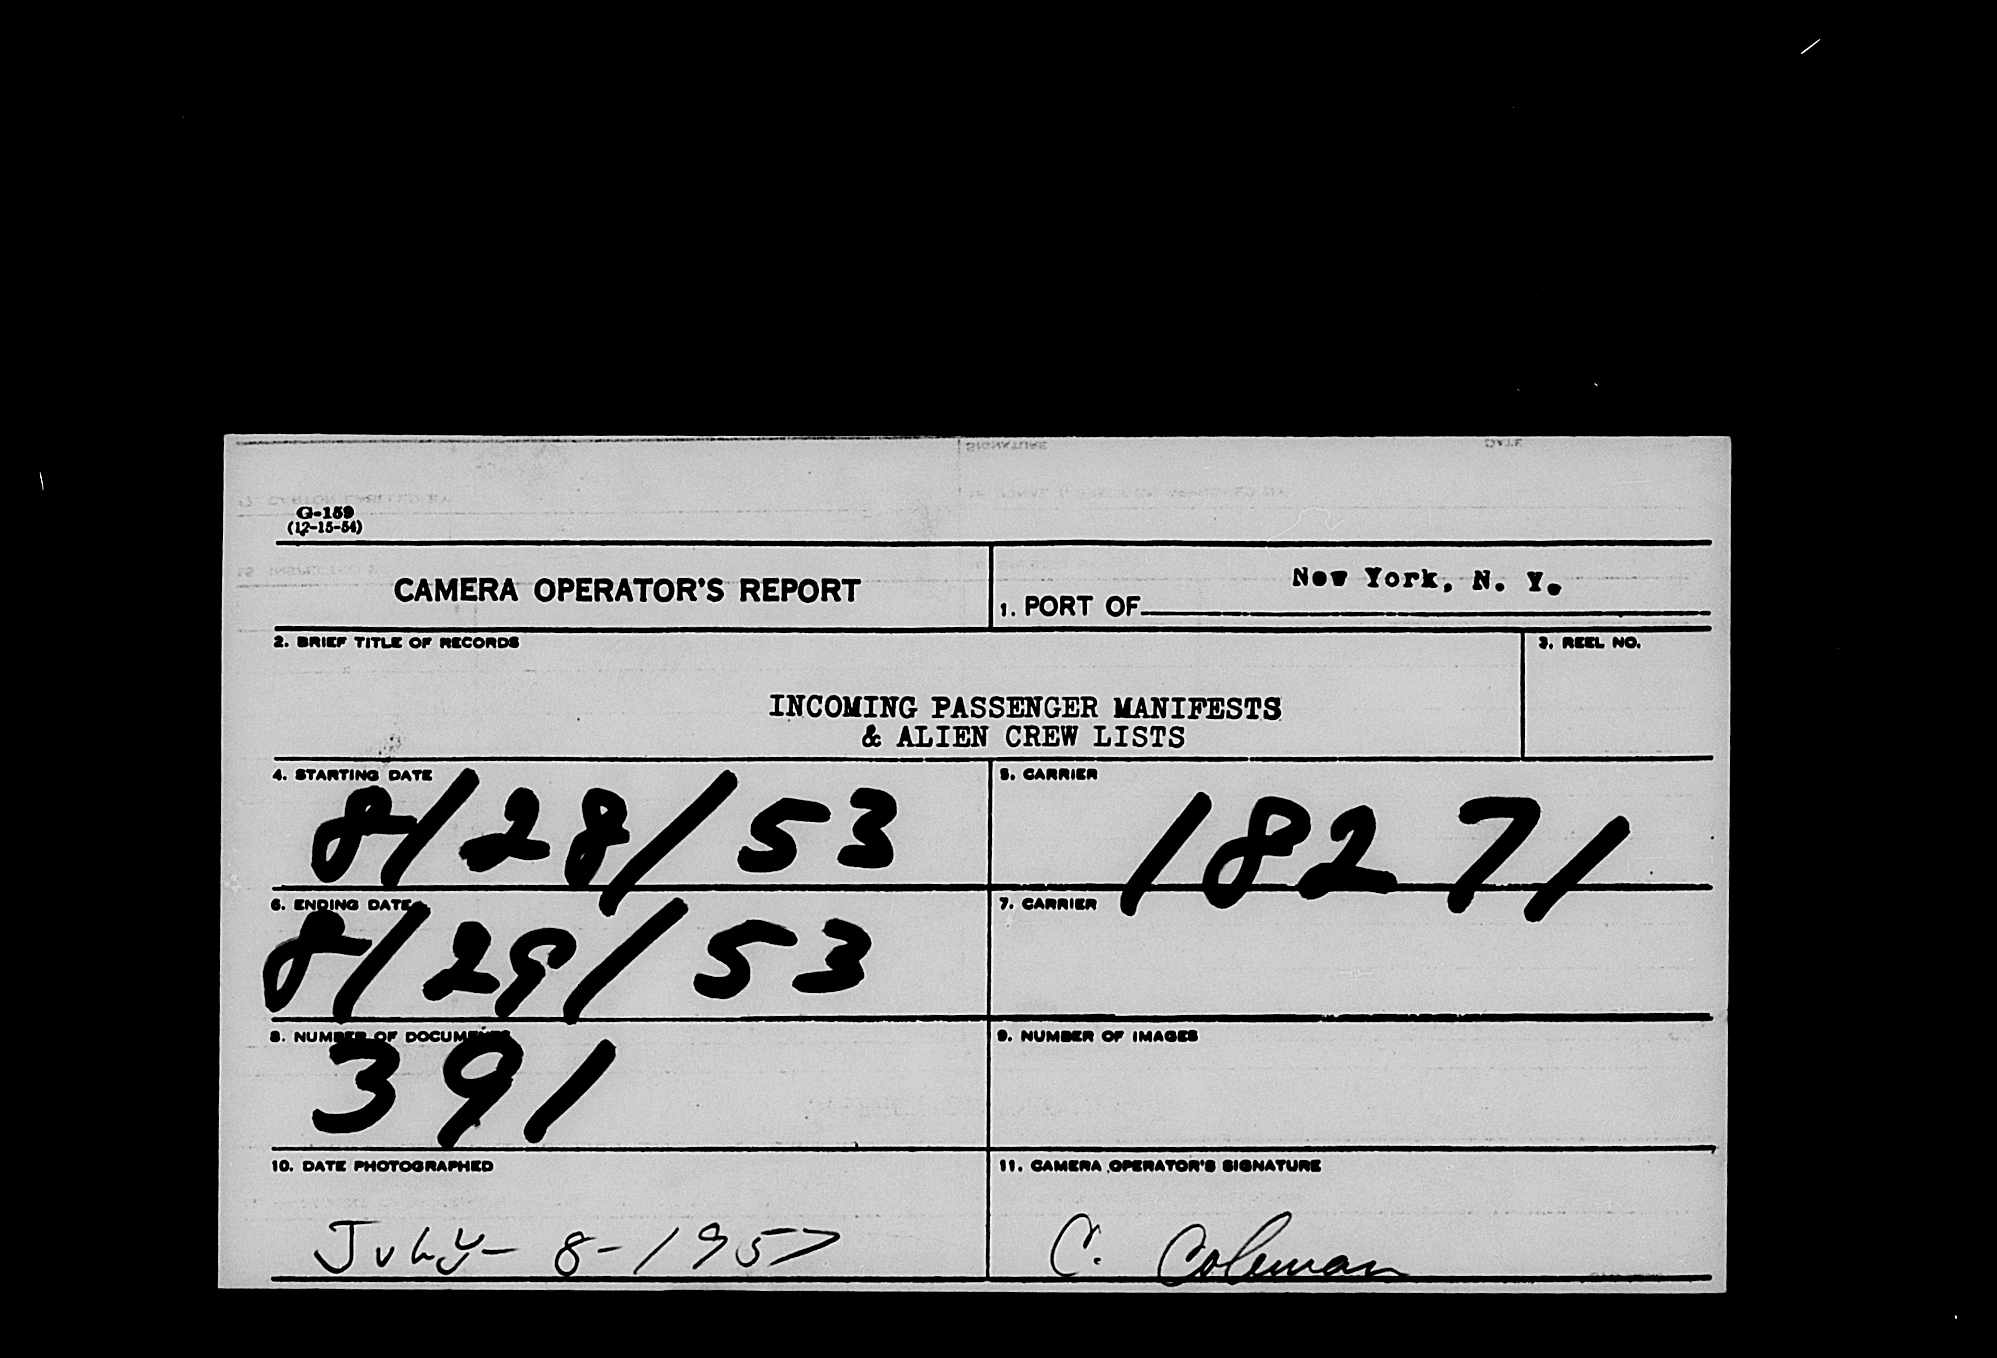 G-159
(12-15-54)
CAMERA OPERATOR'S REPORT
1. PORT OF New York, N. Y.
2. BRIEF TITLE OF RECORDS
3. REEL NO.
INCOMING PASSENGER MANIFESTS
& ALIEN CREW LISTS
4. STARTING DATE
8/28/53
5. CARRIER
18271
6. ENDING DATE
8/29/53
7. CARRIER
8. NUMBER OF DOCUMENTS
391
9. NUMBER OF IMAGES
10. DATE PHOTOGRAPHED
July- 8-1957
11. CAMERA OPERATOR'S SIGNATURE
C. Coleman